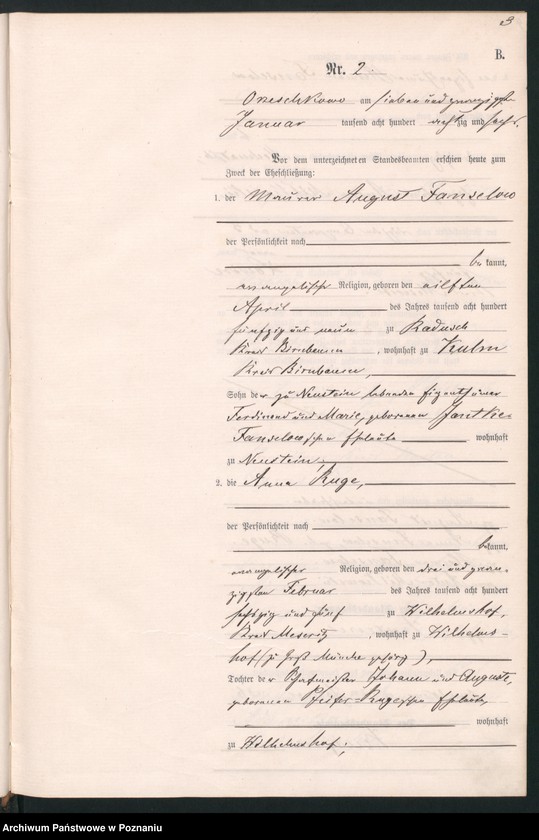 3
B.
Nr. 2
Orzeschkowo am sieben und zwanzigsten
Januar tausend acht hundert achtzig und sechs.
Vor dem unterzeichneten Standesbeamten erschien heute zum
Zweck der Eheschließung:
1. der Maurer August Fanselow
der Persönlichkeit nach
bekannt,
evangelischer Religion, geboren den eilften
April des Jahres tausend acht hundert
fünfzig und neun zu Radusch
Kreis Birnbaum, wohnhaft zu Kulm
Kreis Birnbaum,
Sohn der zu Neustein lebenden Eigenthümer
Ferdinand und Marie, geborenen Jantke
Fanselow'schen Eheleute wohnhaft
zu Neustein;
2. die Anna Ruge,
der Persönlichkeit nach
bekannt,
evangelischer Religion, geboren den drei und zwan-
zigsten Februar des Jahres tausend acht hundert
sechszig und fünf zu Wilhelmshof,
Kreis Meseritz, wohnhaft zu Wilhelms-
hof (zu Groß Münche gehörig),
Tochter der Schafmeister Johann und Auguste,
geborenen Ruge'schen Eheleute,
wohnhaft
zu Wilhelmshof;
Archiwum Państwowe w Poznaniu